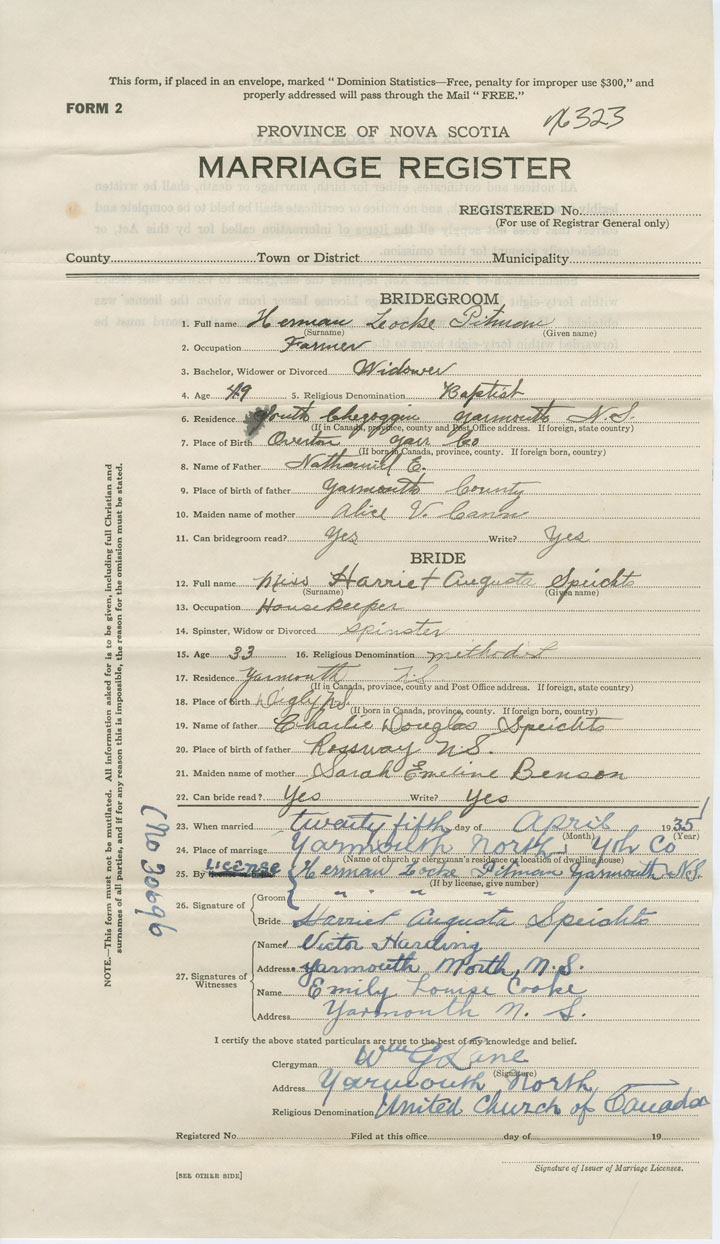 This form, if placed in an envelope, marked “ Dominion Statistics—Free, penalty for improper use $300,” and
properly addressed will pass through the Mail “ FREE.”
FORM 2
PROVINCE OF NOVA SCOTIA
MARRIAGE REGISTER
REGISTERED No.
(For use of Registrar General only)
County Town or District Municipality
BRIDEGROOM
1. Full name Herman Locke Pitman
(Surname) (Given name)
2. Occupation Farmer
3. Bachelor, Widower or Divorced Widower
4. Age 49 5. Religious Denomination Baptist
6. Residence South Chegoggin Yarmouth N.S.
(If in Canada, province, county and Post Office address. If foreign, state country)
7. Place of Birth Overton Yarr Co
(If born in Canada, province, county. If foreign born, country)
8. Name of Father Nathaniel E.
9. Place of birth of father Yarmouth County
10. Maiden name of mother Alice V. Cann
11. Can bridegroom read? Yes Write? Yes
BRIDE
12. Full name Miss Harriet Augusta Speichts
(Surname) (Given name)
13. Occupation Housekeeper
14. Spinster, Widow or Divorced spinster
15. Age 33 16. Religious Denomination methodist
17. Residence Yarmouth N.S.
(If in Canada, province, county and Post Office address. If foreign, state country)
18. Place of birth Digby N.S.
(If born in Canada, province, county. If foreign born, country)
19. Name of father Charlie Douglas Speichts
20. Place of birth of father Rossway N.S.
21. Maiden name of mother Sarah Emeline Benson
22. Can bride read? Yes Write? Yes
23. When married twenty fifth day of April 1935
(Month) (Year)
24. Place of marriage Yarmouth North, Yth Co
(Name of church or clergyman's residence or location of dwelling house)
25. By License Herman Locke Pitman Yarmouth N.S.
(If by license, give number)
26. Signature of
Groom " " " "
Bride Harriet Augusta Speichts
27. Signatures of Witnesses
Name Victor Harding
Address Yarmouth North, N.S.
Name Emily Louise Cooke
Address Yarmouth N. S.
I certify the above stated particulars are true to the best of my knowledge and belief.
Clergyman Wm G Lane
(Signature)
Address Yarmouth North
Religious Denomination United Church of Canada
Registered No. Filed at this office day of 19
Signature of Issuer of Marriage Licenses.
[SEE OTHER SIDE]
NOTE.—This form must not be mutilated. All information asked for is to be given, including full Christian and
surnames of all parties, and if for any reason this is impossible, the reason for the omission must be stated.
(No 30696